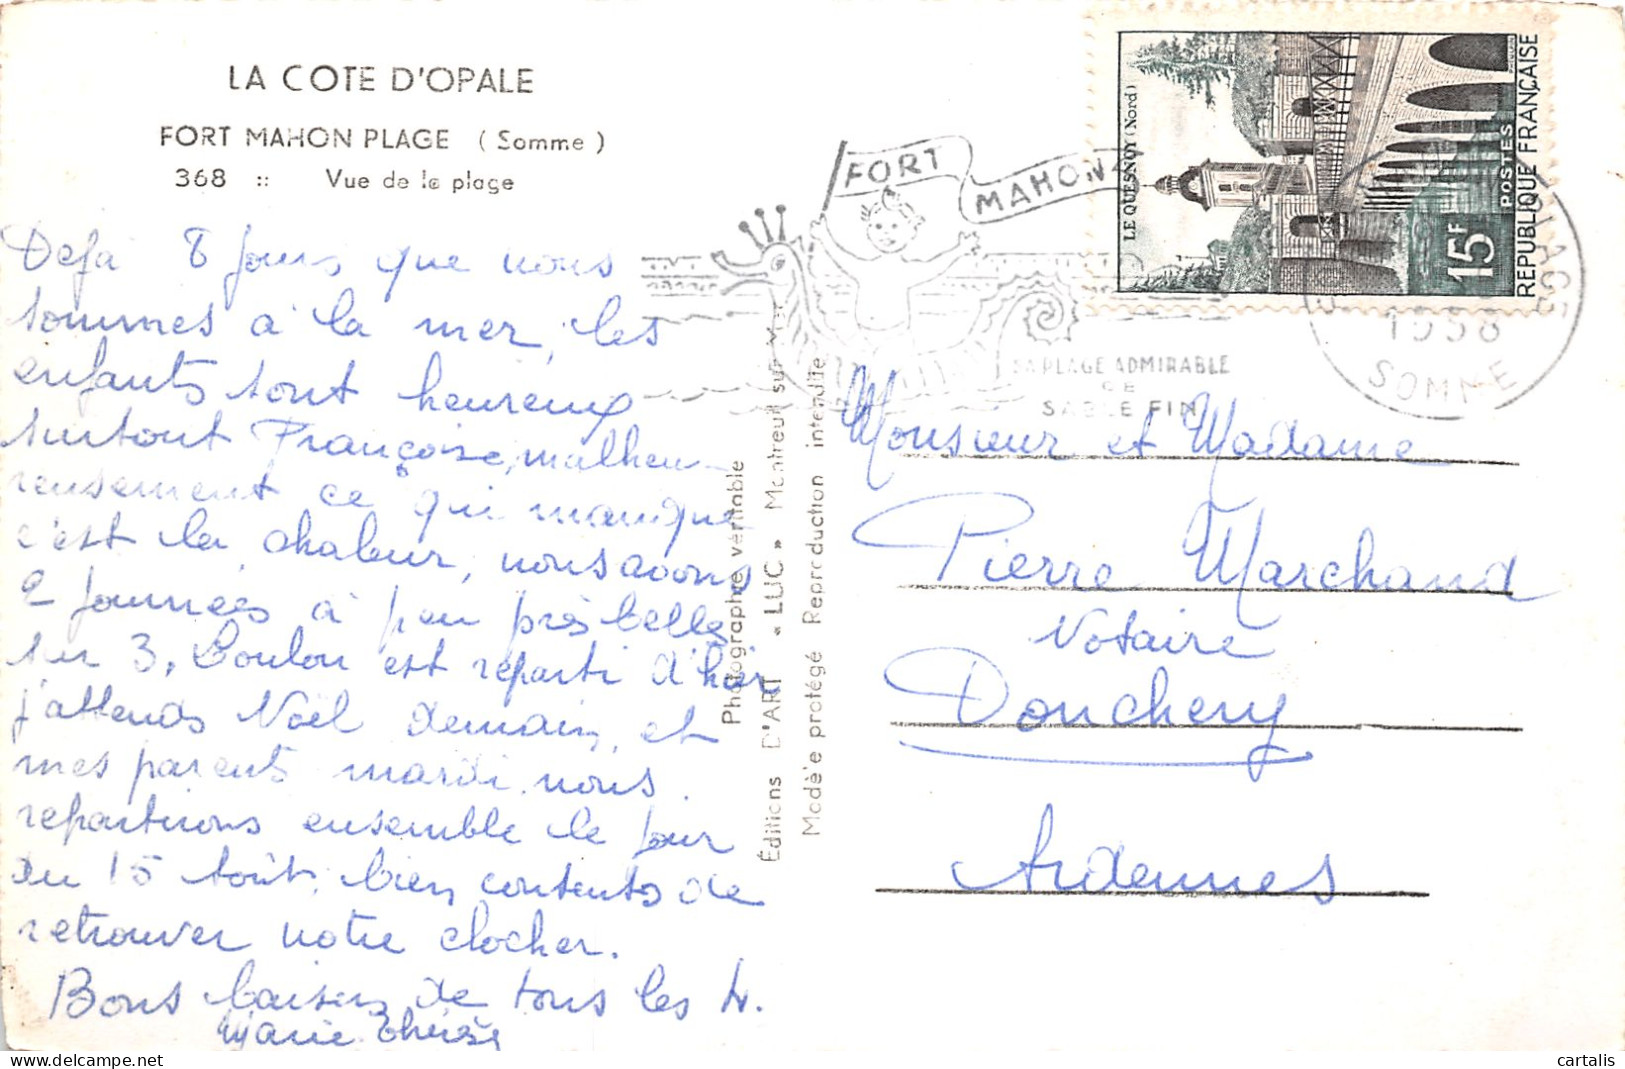 LA COTE D'OPALE
FORT MAHON PLAGE ( Somme )
368 :: Vue de la plage
Déjà 8 jours que nous
sommes à la mer, les
enfants sont heureux
surtout Françoise, malheu-
reusement ce qui manque
c'est la chaleur, nous avons
2 journées à peu près belles
sur 3, Loulou est reparti d'hier
j'attends Noël demain, et
mes parents mardi. nous
repartirons ensemble le jour
du 15 août, bien contents de
retrouver notre clocher.
Bons baisers de tous les 4.
Marie Thérèse
Photographie véritable
Éditions D'ART « LUC » Montreuil sur Mer
Modèle protégé Reproduction interdite
FORT MAHON
SA PLAGE ADMIRABLE
DE
SABLE FIN
LE QUESNOY (Nord)
15F
POSTES
RÉPUBLIQUE FRANÇAISE
PLAGE
1958
SOMME
Monsieur et Madame
Pierre Marchand
Notaire
Donchery
Ardennes
cartalis